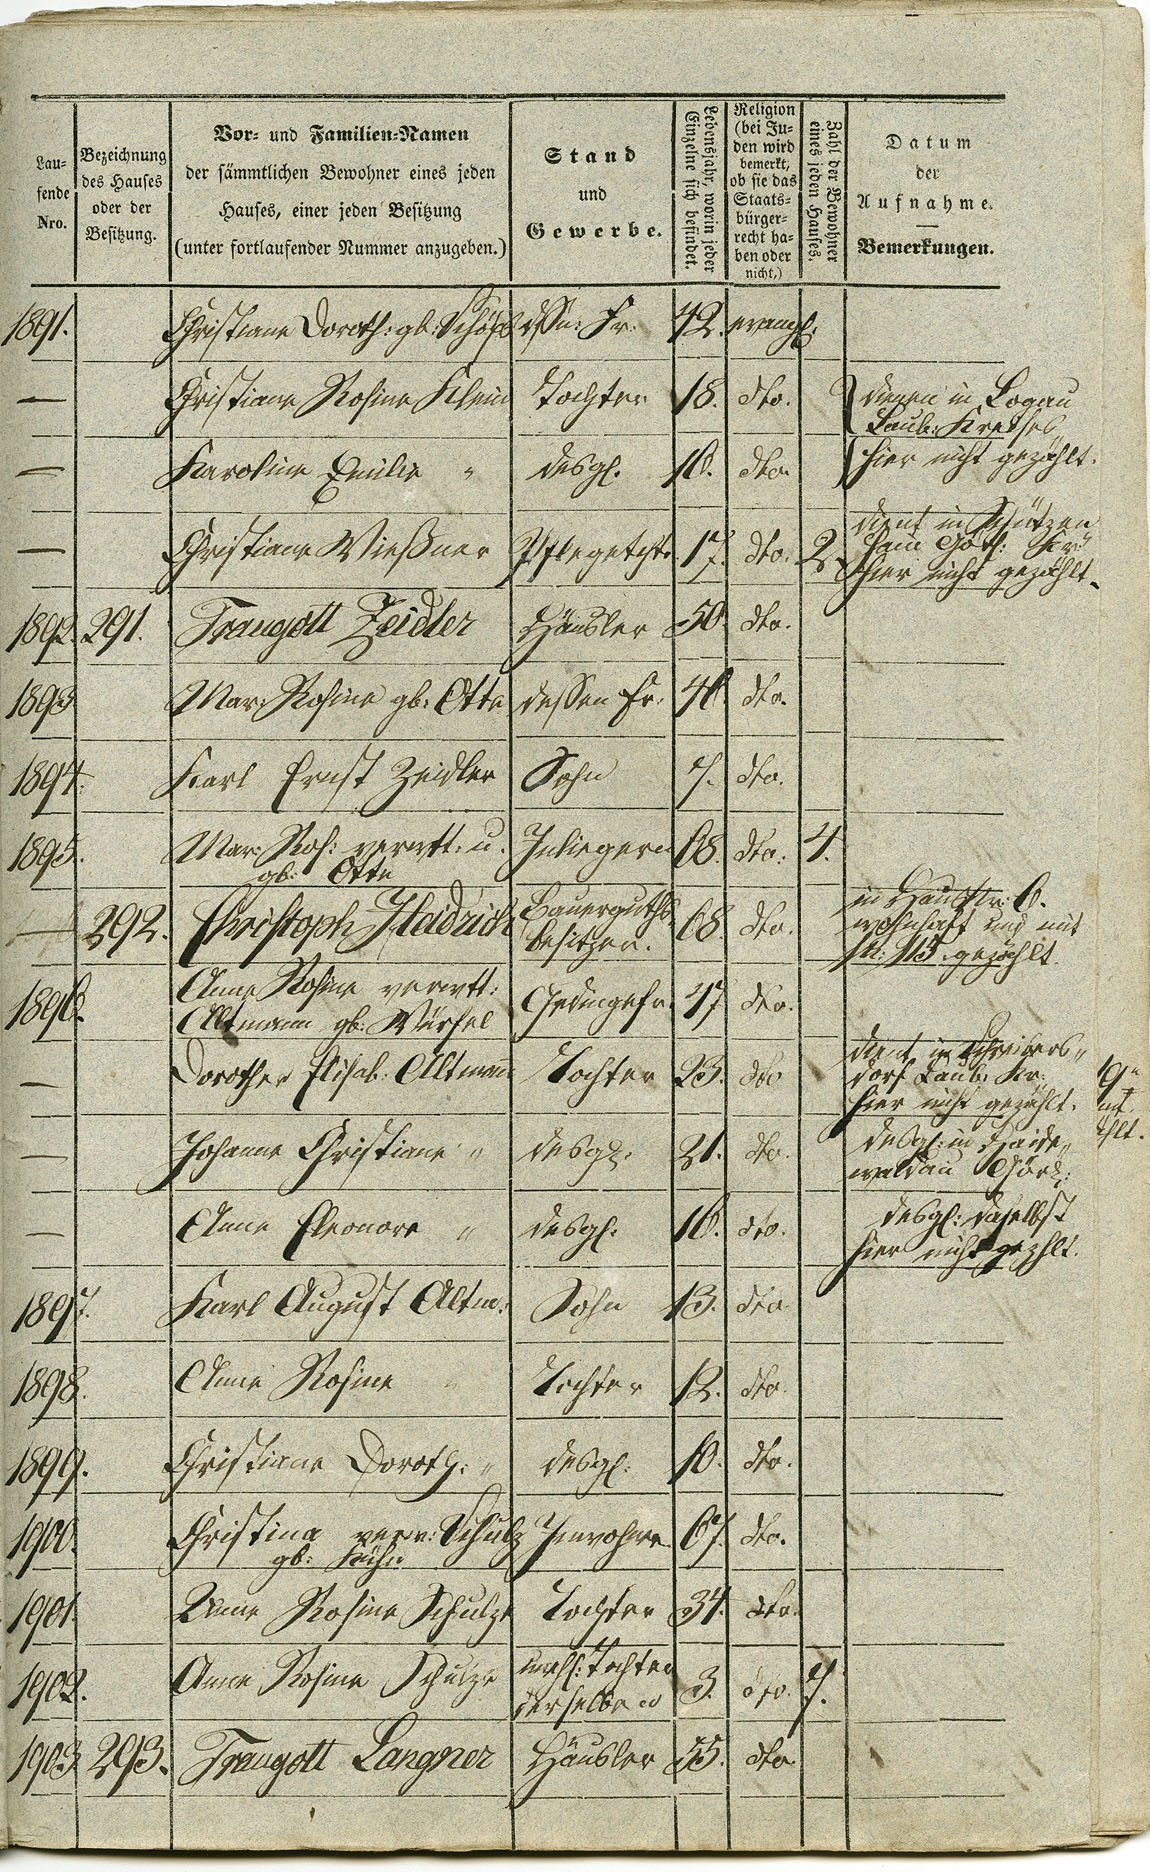 Lau-
fende
Nro.
Bezeichnung
des Hauses
oder der
Besitzung.
Vor- und Familien-Namen
der sämmtlichen Bewohner eines jeden
Hauses, einer jeden Besitzung
(unter fortlaufender Nummer anzugeben.)
Stand
und
Gewerbe.
Lebensjahr, worin jeder
Einzelne sich befindet.
Religion
(bei Ju-
den wird
bemerkt,
ob sie das
Staats-
bürger-
recht ha-
ben oder
nicht,)
Zahl der Bewohner
eines jeden Hauses.
Datum
der
Aufnahme.
Bemerkungen.
1891. Christiane Doroth: gb: dssn: Fr: 42. evangl:
— Christiane Rosine Klein Tochter 18. dto. dienen in Logau
Laub: Kreises
— Karoline Emilie " desgl. 16. dto. hier nicht gezählt.
— Christiane Wießner Pflegetcht. 17. dto. 2. dient in Schützen
hain Görl: Kr:
hier nicht gezählt.
1892. 291. Traugott Zeidler Häusler 50. dto.
1893 Mar: Rosine gb: Otte dessen Fr. 46. dto.
1894. Karl Ernst Zeidler Sohn 7. dto.
1895. Mar: Ros: verwtt: u. Inliegerin 68. dto: 4.
gb: Otte
— 292. Christoph Heidrich Bauerguths
besitzer. 68. dto. in Haus Nr: 6.
wohnhaft und mit
N: 115 gezählt.
1896. Anne Rosine verwtt:
Altmann gb: Würfel Gedingefr. 47 dto.
— Dorothee Elisab: Altmann Tochter 23. dto dient in Schreibers-
dorf Laub: Kr:
hier nicht gezählt.
— Johanne Christiane " desgl. 21. dto. desgl: in Haide
waldau Görl:
— Anne Eleonore " desgl: 16. dto. desgl: daselbst
hier nicht gezhlt.
1897. Karl August Altm: Sohn 13. dto
1898. Anne Rosine " Tochter 12. dto.
1899. Christiane Doroth: " desgl: 10. dto.
1900. Christina verw: Schulz Inwohner. 67. dto.
gb: Kühn
1901. Anne Rosine Schulze Tochter 34. dto.
1902. Anne Rosine Schulze unehl: Tochter
derselben 3. dto. 7.
1903 293. Traugott Langner Häusler 55. dto